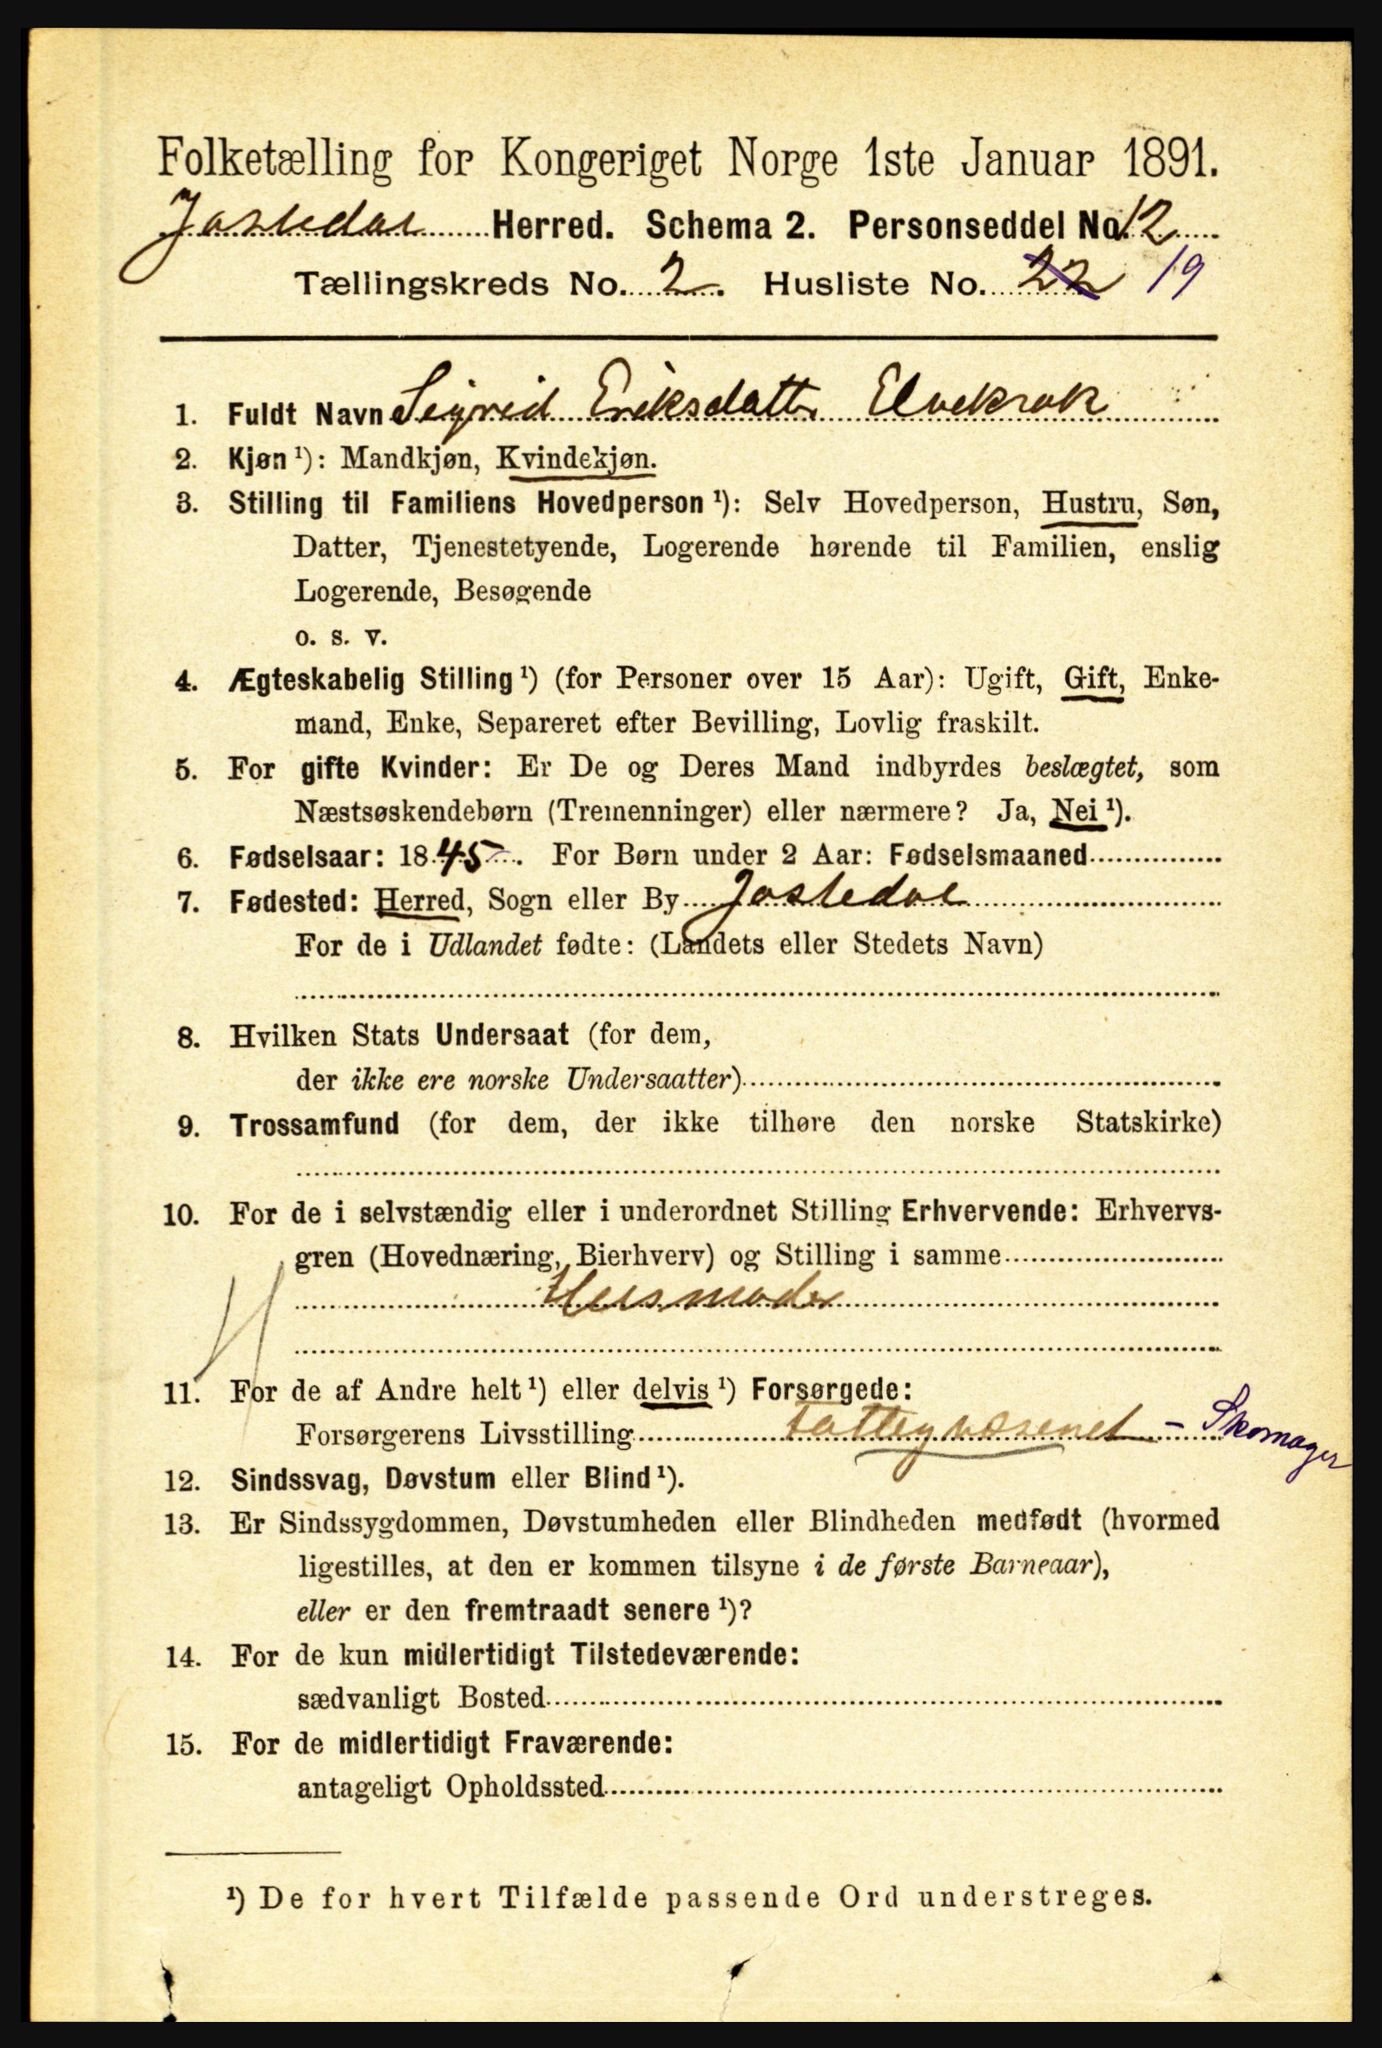 Folketælling for Kongeriget Norge 1ste Januar 1891.
Jostedal Herred. Schema 2. Personseddel No. 12
Tællingskreds No. 2. Husliste No. 22 19
1. Fuldt Navn Sigrid Eriksdatter Elvekrok
2. Kjøn ¹): Mandkjøn, Kvindekjøn.
3. Stilling til Familiens Hovedperson ¹): Selv Hovedperson, Hustru, Søn,
Datter, Tjenestetyende, Logerende hørende til Familien, enslig
Logerende, Besøgende
o. s. v.
4. Ægteskabelig Stilling ¹) (for Personer over 15 Aar): Ugift, Gift, Enke-
mand, Enke, Separeret efter Bevilling, Lovlig fraskilt.
5. For gifte Kvinder: Er De og Deres Mand indbyrdes beslægtet, som
Næstsøskendebørn (Tremenninger) eller nærmere? Ja, Nei ¹).
6. Fødselsaar: 1845. For Børn under 2 Aar: Fødselsmaaned
7. Fødested: Herred, Sogn eller By Jostedal
For de i Udlandet fødte: (Landets eller Stedets Navn)
8. Hvilken Stats Undersaat (for dem,
der ikke ere norske Undersaatter)
9. Trossamfund (for dem, der ikke tilhøre den norske Statskirke)
10. For de i selvstændig eller i underordnet Stilling Erhvervende: Erhvervs-
gren (Hovednæring, Bierhverv) og Stilling i samme
Husmoder
11. For de af Andre helt ¹) eller delvis ¹) Forsørgede:
Forsørgerens Livsstilling Fattigvæsenet – Skomager
12. Sindssvag, Døvstum eller Blind ¹).
13. Er Sindssygdommen, Døvstumheden eller Blindheden medfødt (hvormed
ligestilles, at den er kommen tilsyne i de første Barneaar),
eller er den fremtraadt senere ¹)?
14. For de kun midlertidigt Tilstedeværende:
sædvanligt Bosted
15. For de midlertidigt Fraværende:
antageligt Opholdssted
¹) De for hvert Tilfælde passende Ord understreges.